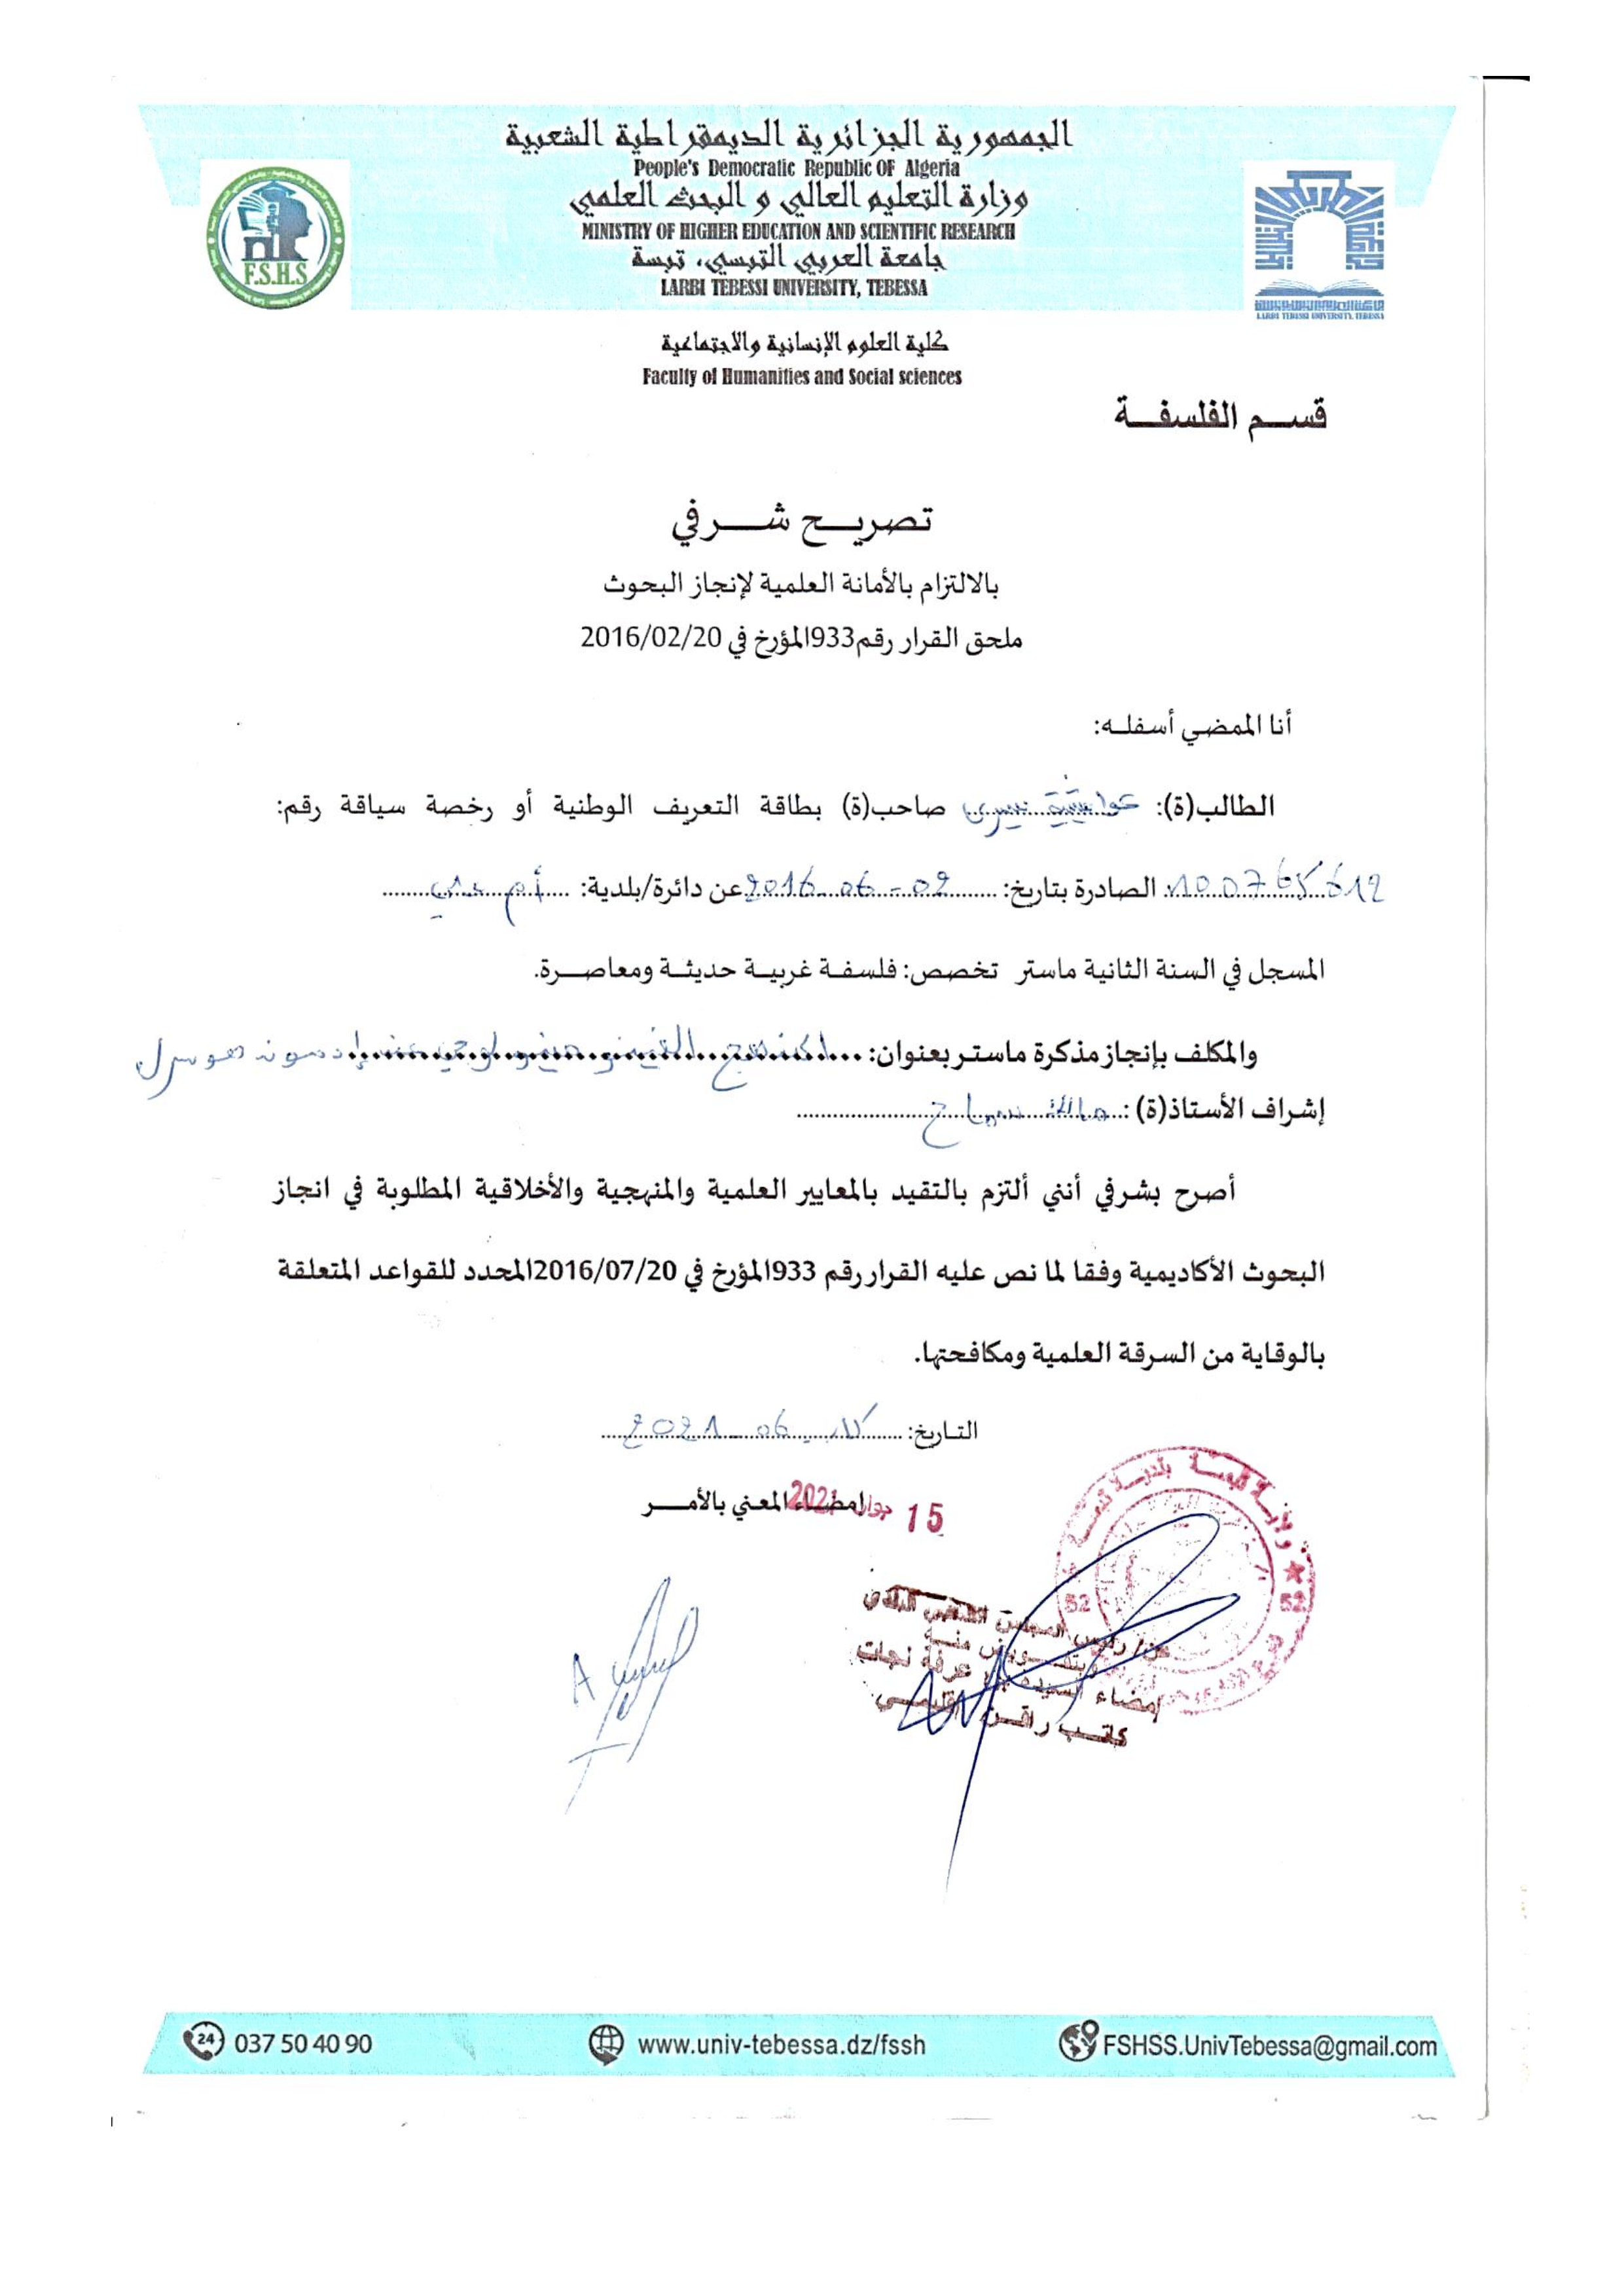 الجمهورية الجزائرية الديمقراطية الشعبية
People's Democratic Republic OF Algeria
وزارة التعليم العالي و البحث العلمي
MINISTRY OF HIGHER EDUCATION AND SCIENTIFIC RESEARCH
جامعة العربي التبسي، تبسة
LARBI TEBESSI UNIVERSITY, TEBESSA
F.S.H.S
LARBI TEBESSI UNIVERSITY, TEBESSA
كلية العلوم الإنسانية والاجتماعية
Faculty of Humanities and Social sciences
قســم الفلسفــة
تصريــح شــرفي
بالالتزام بالأمانة العلمية لإنجاز البحوث
ملحق القرار رقم933المؤرخ في 2016/02/20
أنا الممضي أسفلـه:
الطالب(ة): صاحب(ة) بطاقة التعريف الوطنية أو رخصة سياقة رقم:
100765612 الصادرة بتاريخ: 02-06-2016 عن دائرة/بلدية: أم علي
المسجل في السنة الثانية ماستر تخصص: فلسفـة غربيـة حديثـة ومعاصـرة.
والمكلف بإنجاز مذكرة ماستر بعنوان: المنهج الفينومينولوجي عند إدموند هوسرل
إشراف الأستاذ(ة): سماح
أصرح بشرفي أنني ألتزم بالتقيد بالمعايير العلمية والمنهجية والأخلاقية المطلوبة في انجاز
البحوث الأكاديمية وفقا لما نص عليه القرار رقم 933المؤرخ في 2016/07/20المحدد للقواعد المتعلقة
بالوقاية من السرقة العلمية ومكافحتها.
التـاريخ: 06-2021
15 جوان 2021
إمضـاء المعني بالأمــر
ولايـة تبسـة بلديـة تبسـة
52 52
عن/ رئيس المجلس الشعبي البلدي
وبتفـويض منـه
إمضاء السيدة عرفة نجات
037 50 40 90
www.univ-tebessa.dz/fssh
FSHSS.UnivTebessa@gmail.com